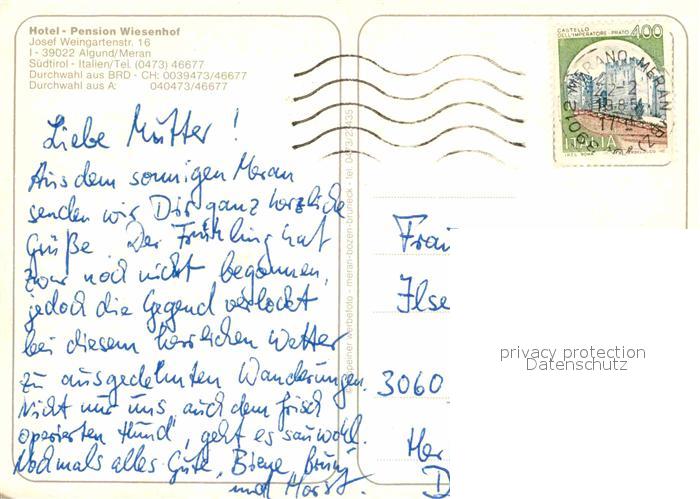 Hotel - Pension Wiesenhof
Josef Weingartenstr. 16
I - 39022 Algund/Meran
Südtirol - Italien/Tel. (0473) 46677
Durchwahl aus BRD - CH: 0039473/46677
Durchwahl aus A: 040473/46677
Liebe Mutter!
Aus dem sonnigen Meran
senden wir Dir ganz herzliche
Grüße. Der Frühling hat
zwar noch nicht begonnen,
jedoch die Gegend verlockt
bei diesem herrlichen Wetter
zu ausgedehnten Wanderungen.
Nicht nur uns, auch dem frisch
operierten Hund, geht es sauwohl.
Nochmals alles Gute, Biene, Bruno
und Horst.
werbefoto - meran-bozen-bruneck - tel. 0473/23435
CASTELLO
DELL'IMPERATORE - PRATO
400
ITALIA
39012 MERANO - MERAN (BZ)
22-2
1985
17
Frau
Ilse
3060
Her
D
privacy protection
Datenschutz